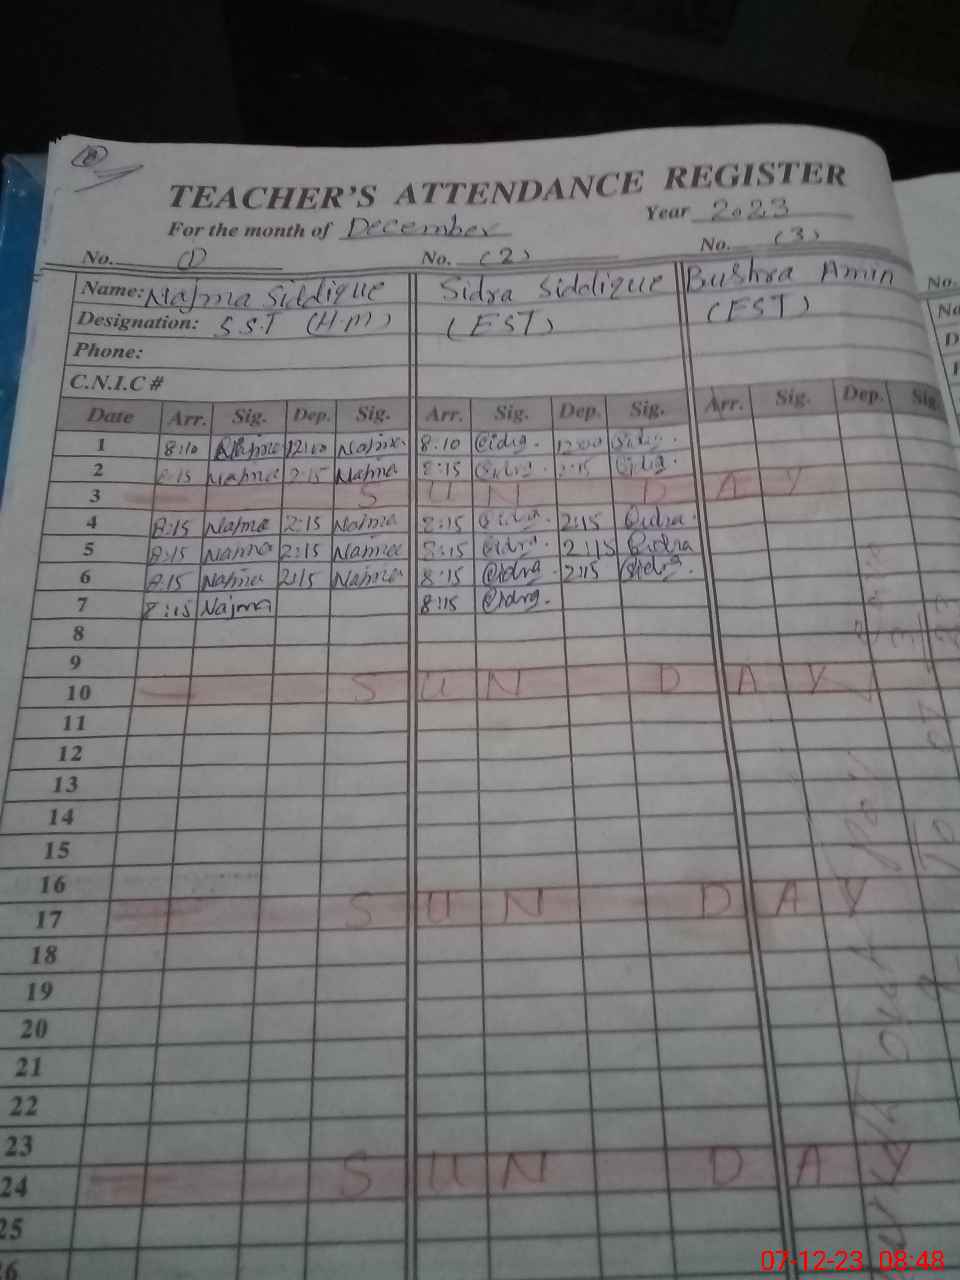 8
TEACHER'S ATTENDANCE REGISTER
For the month of December Year 2023
No. (1) No. (2) No. (3) No.
Name: Najma Siddique Sidra Siddique Bushra Amin
Designation: S.S.T (H.M) (EST) (EST)
Phone:
C.N.I.C #
Date Arr. Sig. Dep. Sig. Arr. Sig. Dep. Sig. Arr. Sig. Dep. Sig.
1 8:10 Najma 12:00 Najma 8:10 Sidra 12:00 Sidra
2 8:15 Najma 2:15 Najma 8:15 Sidra 2:15 Sidra
3 SUNDAY
4 8:15 Najma 2:15 Najma 8:15 Sidra 2:15 Sidra
5 8:15 Najma 2:15 Najma 8:15 Sidra 2:15 Sidra
6 8:15 Najma 2:15 Najma 8:15 Sidra 2:15 Sidra
7 8:15 Najma 8:15 Sidra
8
9
10 SUNDAY
11
12
13
14
15
16
17 SUNDAY
18
19
20
21
22
23
24 SUNDAY
25
26
07-12-23 08:48